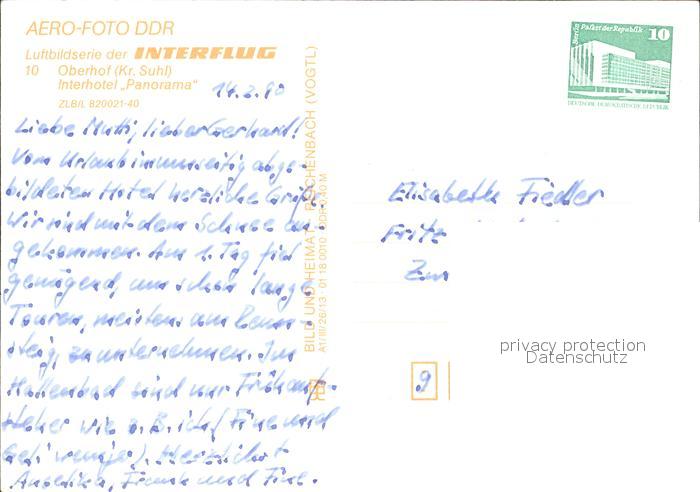 AERO-FOTO DDR
Luftbildserie der INTERFLUG
10 Oberhof (Kr. Suhl)
Interhotel „Panorama"
ZLB/L 820021-40
14.2.80
Liebe Mutti, lieber Gerhard!
Vom Urlaub im umseitig abge-
bildeten Hotel herzliche Grüße.
Wir sind mit dem Schnee an
gekommen. Am 1. Tag fiel
genügend, um schon lange
Touren, meistens am Renn
steig, zu unternehmen. Im
Hallenbad sind nur Frühauf-
steher wie z.B. ich (Fine und
weniger). Herzlichst
Angelika, Frank und Fine.
BILD UND HEIMAT REICHENBACH (VOGTL)
A1/III/26/13 01 18 0010
Berlin Palast der Republik 10
DEUTSCHE DEMOKRATISCHE REPUBLIK
Elisabeth Fiedler
Fritz
9
privacy protection
Datenschutz